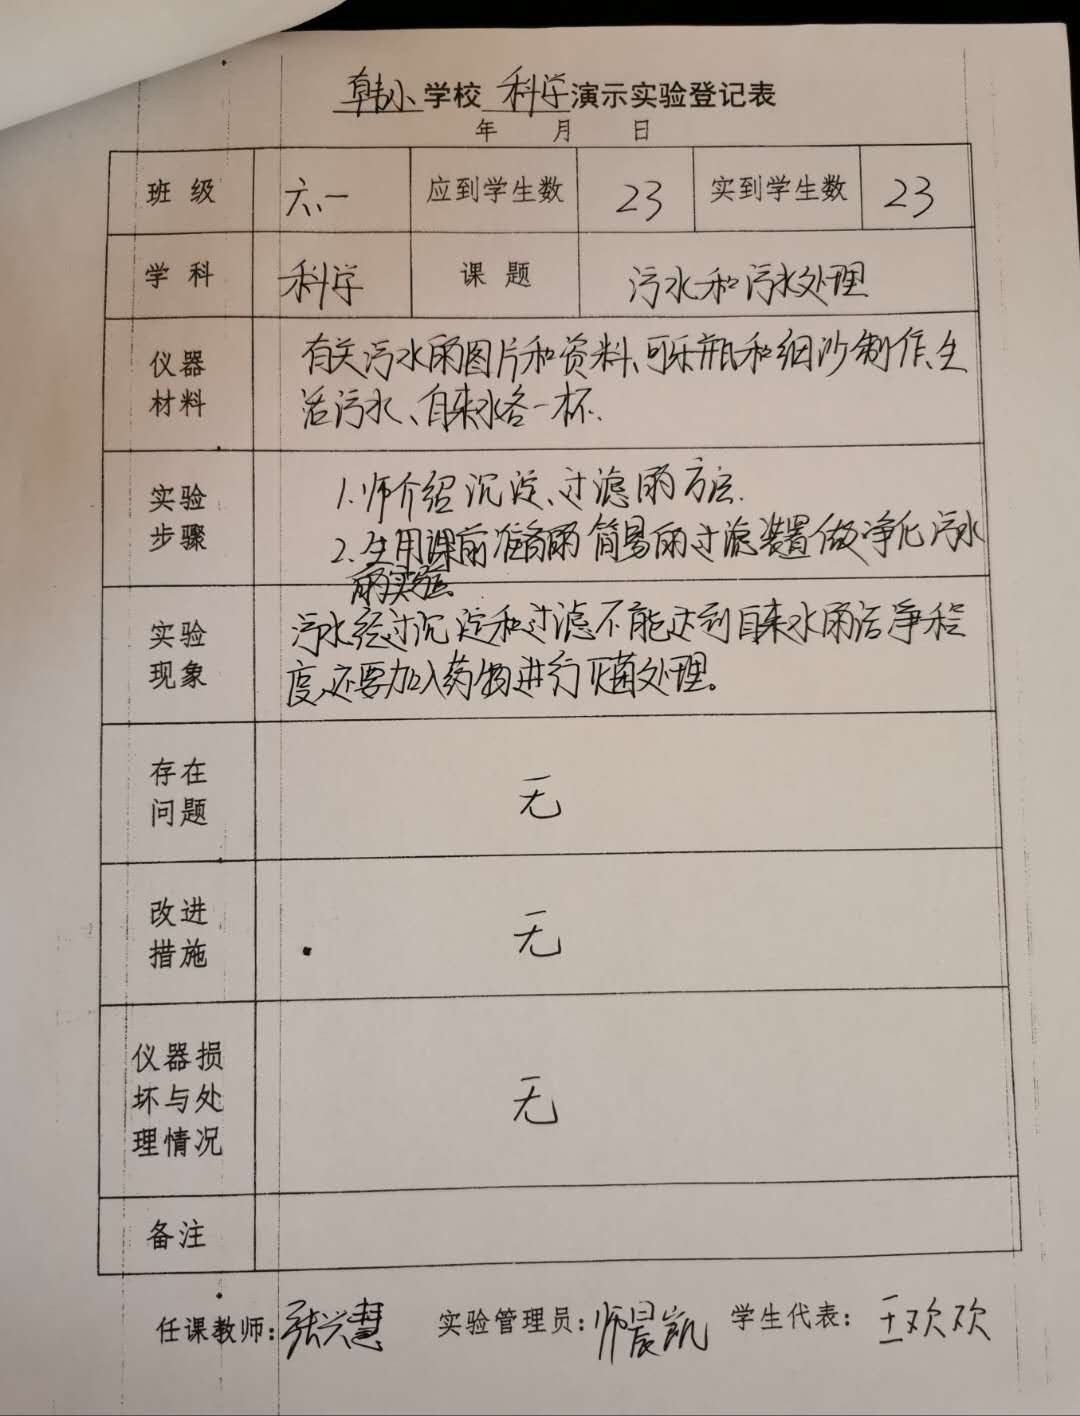 韩小学校 科学演示实验登记表
年 月 日
班级 六、一 应到学生数 23 实到学生数 23
学科 科学 课题 污水和污水处理
仪器
材料
有关污水的图片和资料、可乐瓶和细沙制作、生
活污水、自来水各一杯.
实验
步骤
1.师介绍沉淀、过滤的方法.
2.生用课前准备的简易的过滤装置做净化污水
的实验
实验
现象
污水经过沉淀和过滤不能达到自来水的洁净程
度,还要加入药物进行灭菌处理。
存在
问题
无
改进
措施
无
仪器损
坏与处
理情况
无
备注
任课教师:张兴慧 实验管理员:师晨凯 学生代表:王欢欢